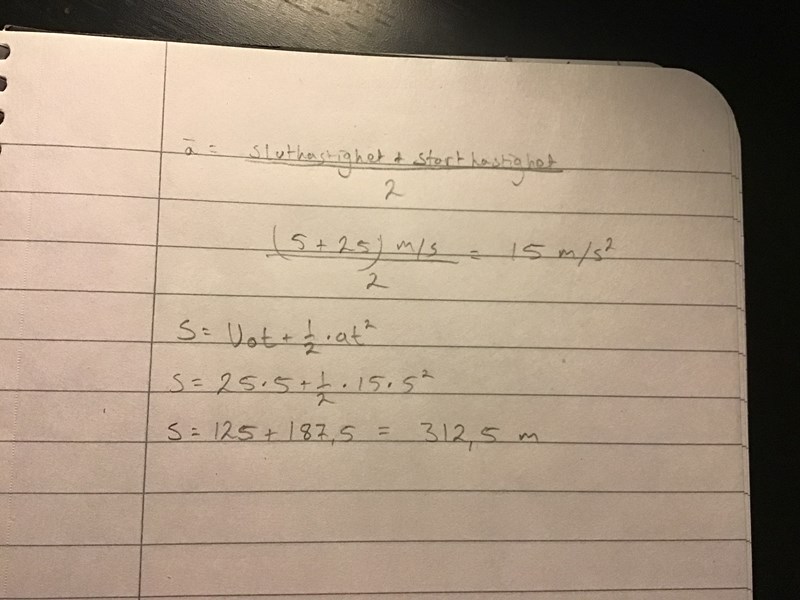 ā = Sluthastighet + Starthastighet
2
(5 + 25) m/s = 15 m/s²
2
S = V₀t + 1/2 · at²
S = 25 · 5 + 1/2 · 15 · 5²
S = 125 + 187,5 = 312,5 m